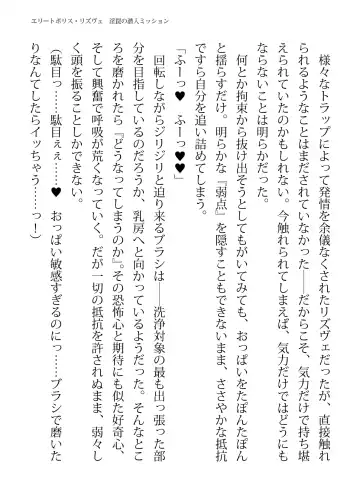 エリートポリス・リズヴェ　淫罠の潜入ミッション
様々なトラップによって発情を余儀なくされたリズヴェだったが、直接触れ
られるようなことはまだされていなかった――だからこそ、気力だけで持ち堪
えられていたのかもしれない。今触れられてしまえば、気力だけではどうにも
ならないことは明らかだった。
何とか拘束から抜け出そうとしてもがいてみても、おっぱいをたぷんたぷん
と揺らすだけ。明らかな『弱点』を隠すこともできないまま、ささやかな抵抗
ですら自分を追い詰めてしまう。
「ふーっ♥　ふーっ♥♥」
回転しながらジリジリと迫り来るブラシは　　洗浄対象の最も出っ張った部
分を目指しているのだろうか、乳房へと向かっているようだった。そんなとこ
ろを磨かれたら『どうなってしまうのか』。その恐怖心と期待にも似た好奇心、
そして興奮で呼吸が荒くなっていく。だが一切の抵抗を許されぬまま、弱々し
く頭を振ることしかできない。
（駄目っ……駄目ぇぇ……♥　おっぱい敏感すぎるのにっ……ブラシで磨いた
りなんてしたらイッちゃう……っ！）